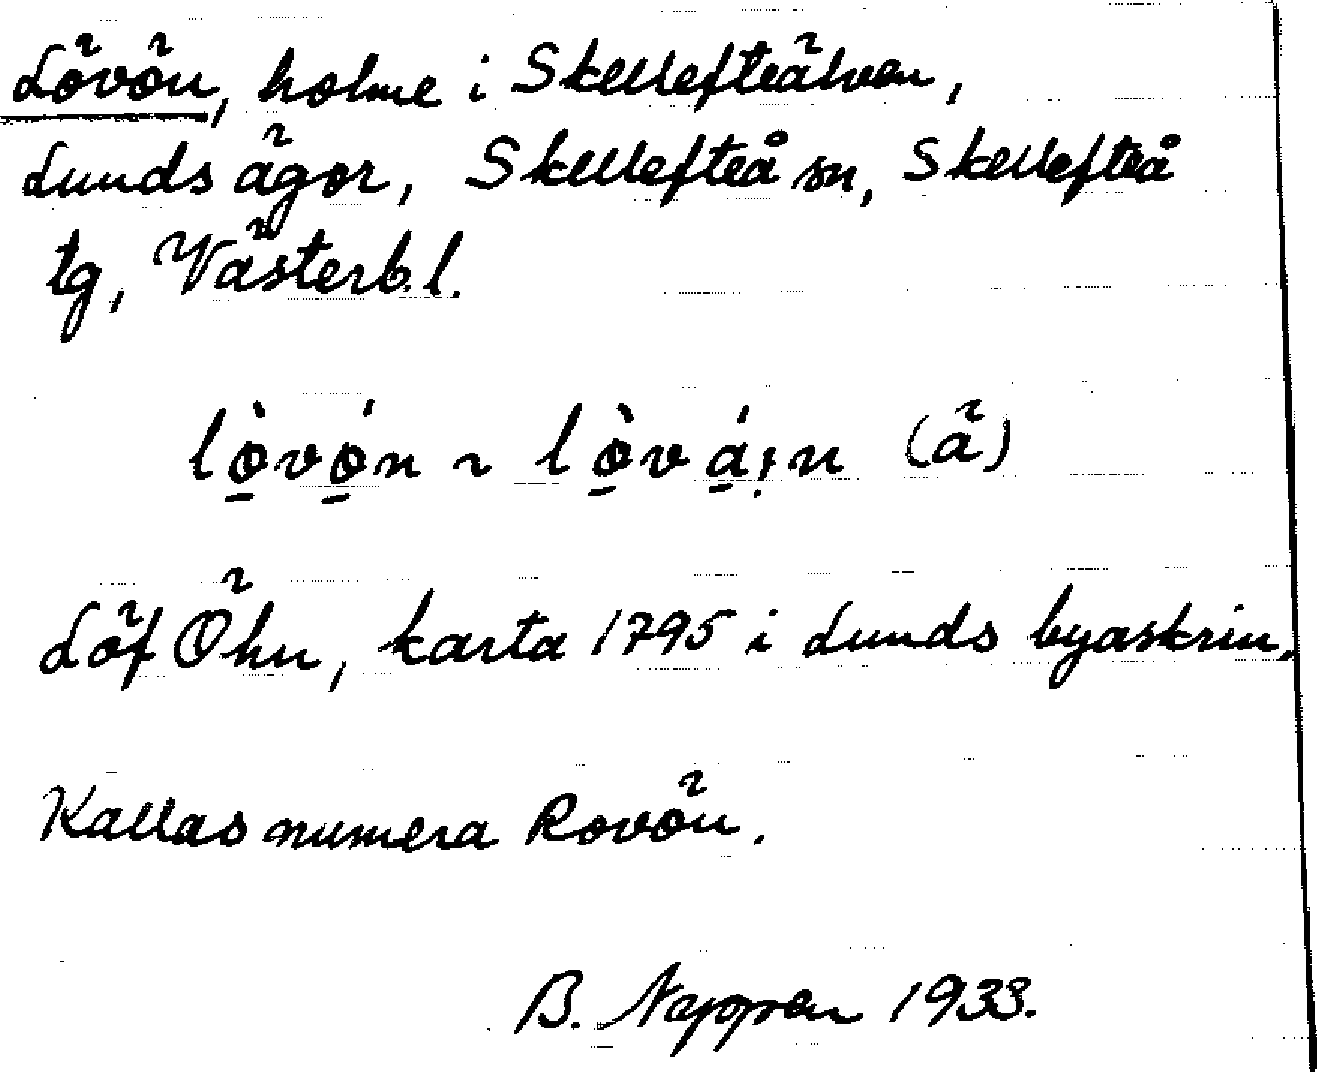 Lövön, holme i Skellefteälven,
Lunds ägor, Skellefteå sn, Skellefteå
tg, Västerb. l.
lò̱vó̱n ~ lò̱vá̱:n (ä)
Löf Öhn, karta 1795 i Lunds byaskrin.
Kallas numera Rovön.
B. 1933.